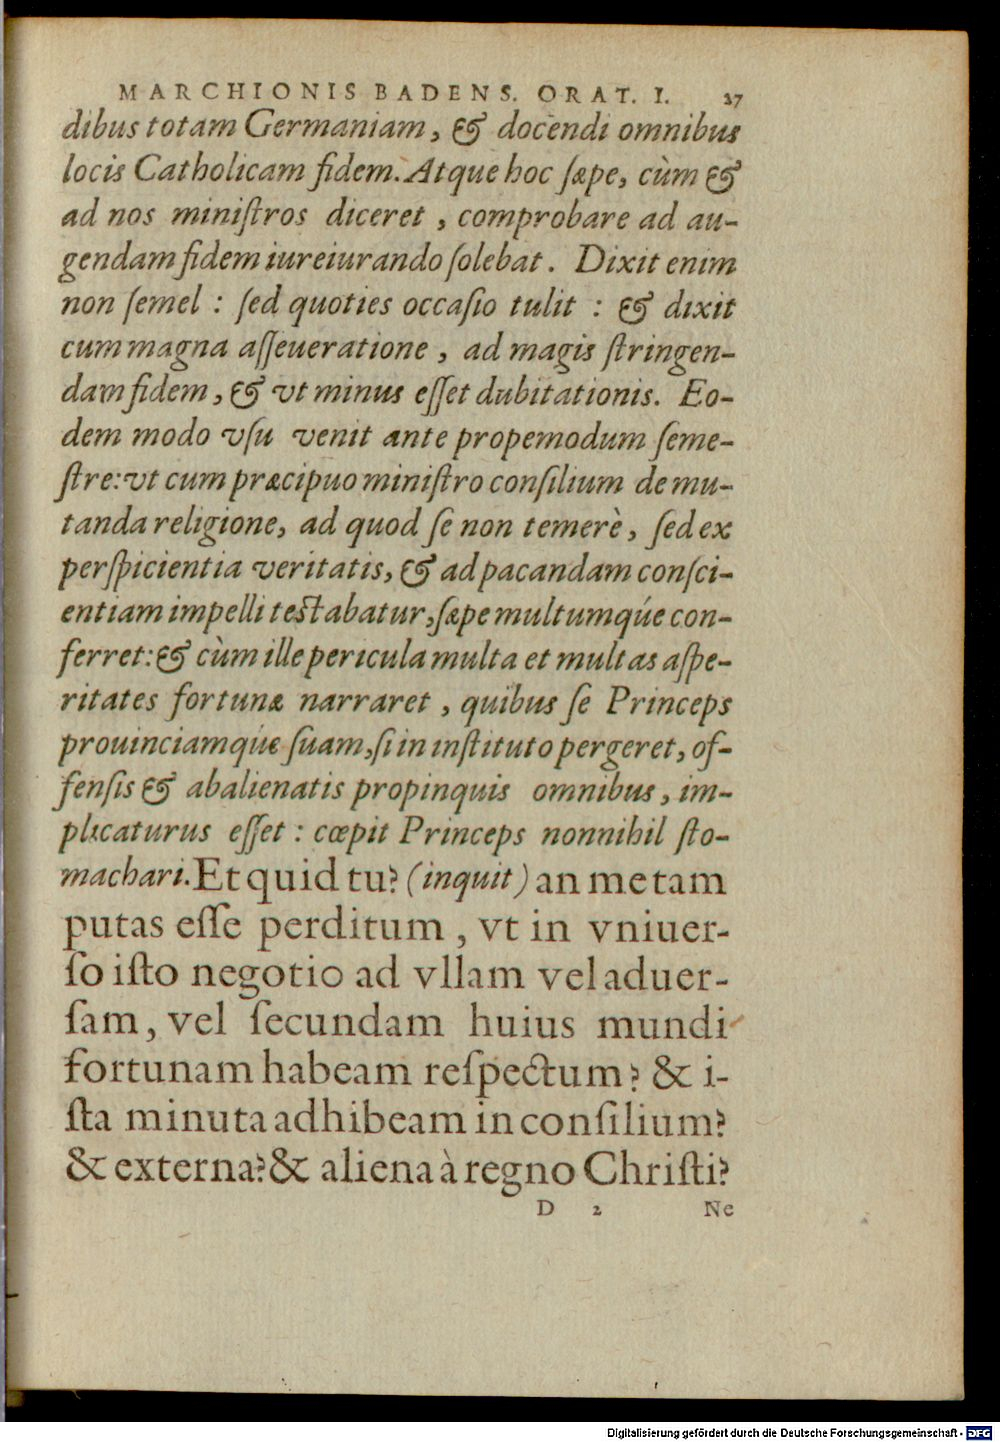 MARCHIONIS BADENS. ORAT. I. 27
dibus totam Germaniam, & docendi omnibus
locis Catholicam fidem. Atque hoc ſæpe, cùm &
ad nos miniſtros diceret, comprobare ad au-
gendam fidem iureiurando ſolebat. Dixit enim
non ſemel: ſed quoties occaſio tulit: & dixit
cum magna aſſeueratione, ad magis ſtringen-
dam fidem, & vt minus eſſet dubitationis. Eo-
dem modo vſu venit ante propemodum ſeme-
ſtre: vt cum præcipuo miniſtro conſilium de mu-
tanda religione, ad quod ſe non temerè, ſed ex
perſpicientia veritatis, & ad pacandam conſci-
entiam impelli teſtabatur, ſæpe multumqúe con-
ferret: & cùm ille pericula multa et multas aſpe-
ritates fortunæ narraret, quibus ſe Princeps
prouinciamqúe ſuam, ſi in inſtituto pergeret, of-
fenſis & abalienatis propinquis omnibus, im-
plicaturus eſſet: cœpit Princeps nonnihil ſto-
machari. Et quid tu? (inquit) an me tam
putas eſſe perditum, vt in vniuer-
ſo iſto negotio ad vllam vel aduer-
ſam, vel ſecundam huius mundi
fortunam habeam reſpectum? & i-
ſta minuta adhibeam in conſilium?
& externa? & aliena à regno Chriſti?
D 2 Ne
Digitalisierung gefördert durch die Deutsche Forschungsgemeinschaft - DFG